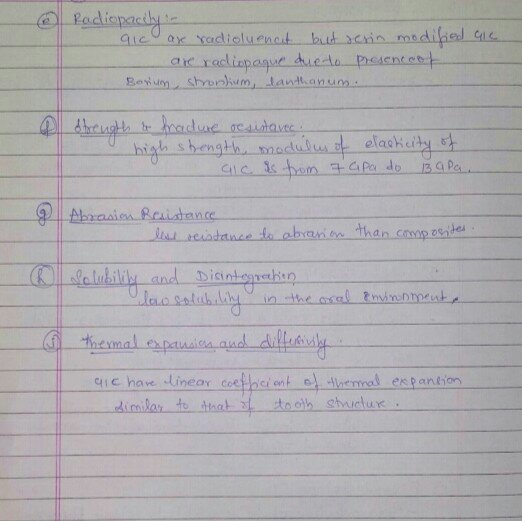 (e) Radiopacity :-
GIC are radioluencet but resin modified GIC
are radiopaque due to presence of
Barium, strontium, lanthanum.
(f) Strength & fracture resistance.
high strength, modulus of elasticity of
GIC is from 7 GPa to 13 GPa.
(g) Abrasion Resistance
less reistance to abrasion than composites.
(h) Solubility and Disintegration
low solubility in the oral Environment.
Thermal expansion and diffusivity.
GIC have linear coefficient of thermal expansion
similar to that of tooth structure.